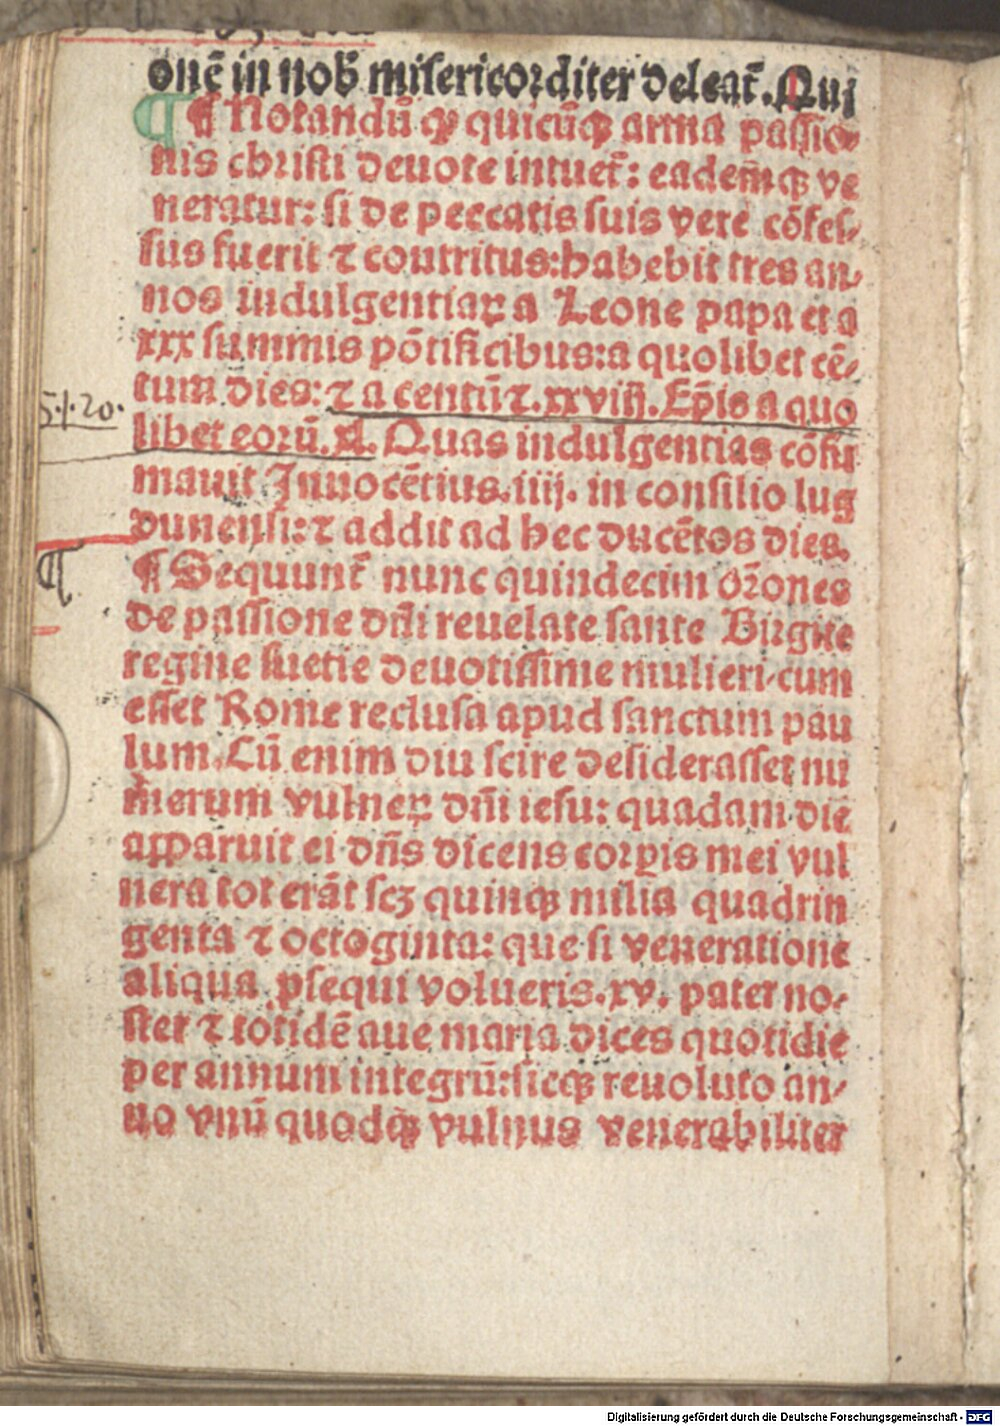 onē in nob̄ misericorditer deleat̄. Qui
¶ Notandū ꝙ quicūqꝫ arma passio⸗
nis christi deuote intuet̄: eadēqꝫ ve
neratur: si de peccatis suis vere cōfes⸗
sus fuerit ⁊ contritus: habebit tres an⸗
nos indulgentiaꝝ a Leone papa et a
xxx summis pōtificibus: a quolibet cē⸗
tum dies: ⁊ a centū ⁊. xxviij. Ep̄is a quo
5·1·20·
libet eorū. xl. Quas indulgentias cōfir
mauit Innocētius. iiij. in consilio lug
dunensi: ⁊ addit ad hec ducētos dies.
¶ Sequunt̄ nunc quindecim or̄ones
de passione dn̄i reuelate sante Birgite
regine suetie deuotissime mulieri cum
esset Rome reclusa apud sanctum pau
lum. Cū enim diu scire desiderasset nu
merum vulneꝝ dn̄i iesu: quadam die
apparuit ei dn̄s dicens corpis mei vul
nera tot erāt scꝫ quinqꝫ milia quadrin
genta ⁊ octoginta: que si veneratione
aliqua ꝑsequi volueris. xv. pater no⸗
ster ⁊ totidē aue maria dices quotidie
per annum integrū: sicqꝫ reuoluto an⸗
no vnū quodqꝫ vulnus venerabiliter
Digitalisierung gefördert durch die Deutsche Forschungsgemeinschaft - DFG